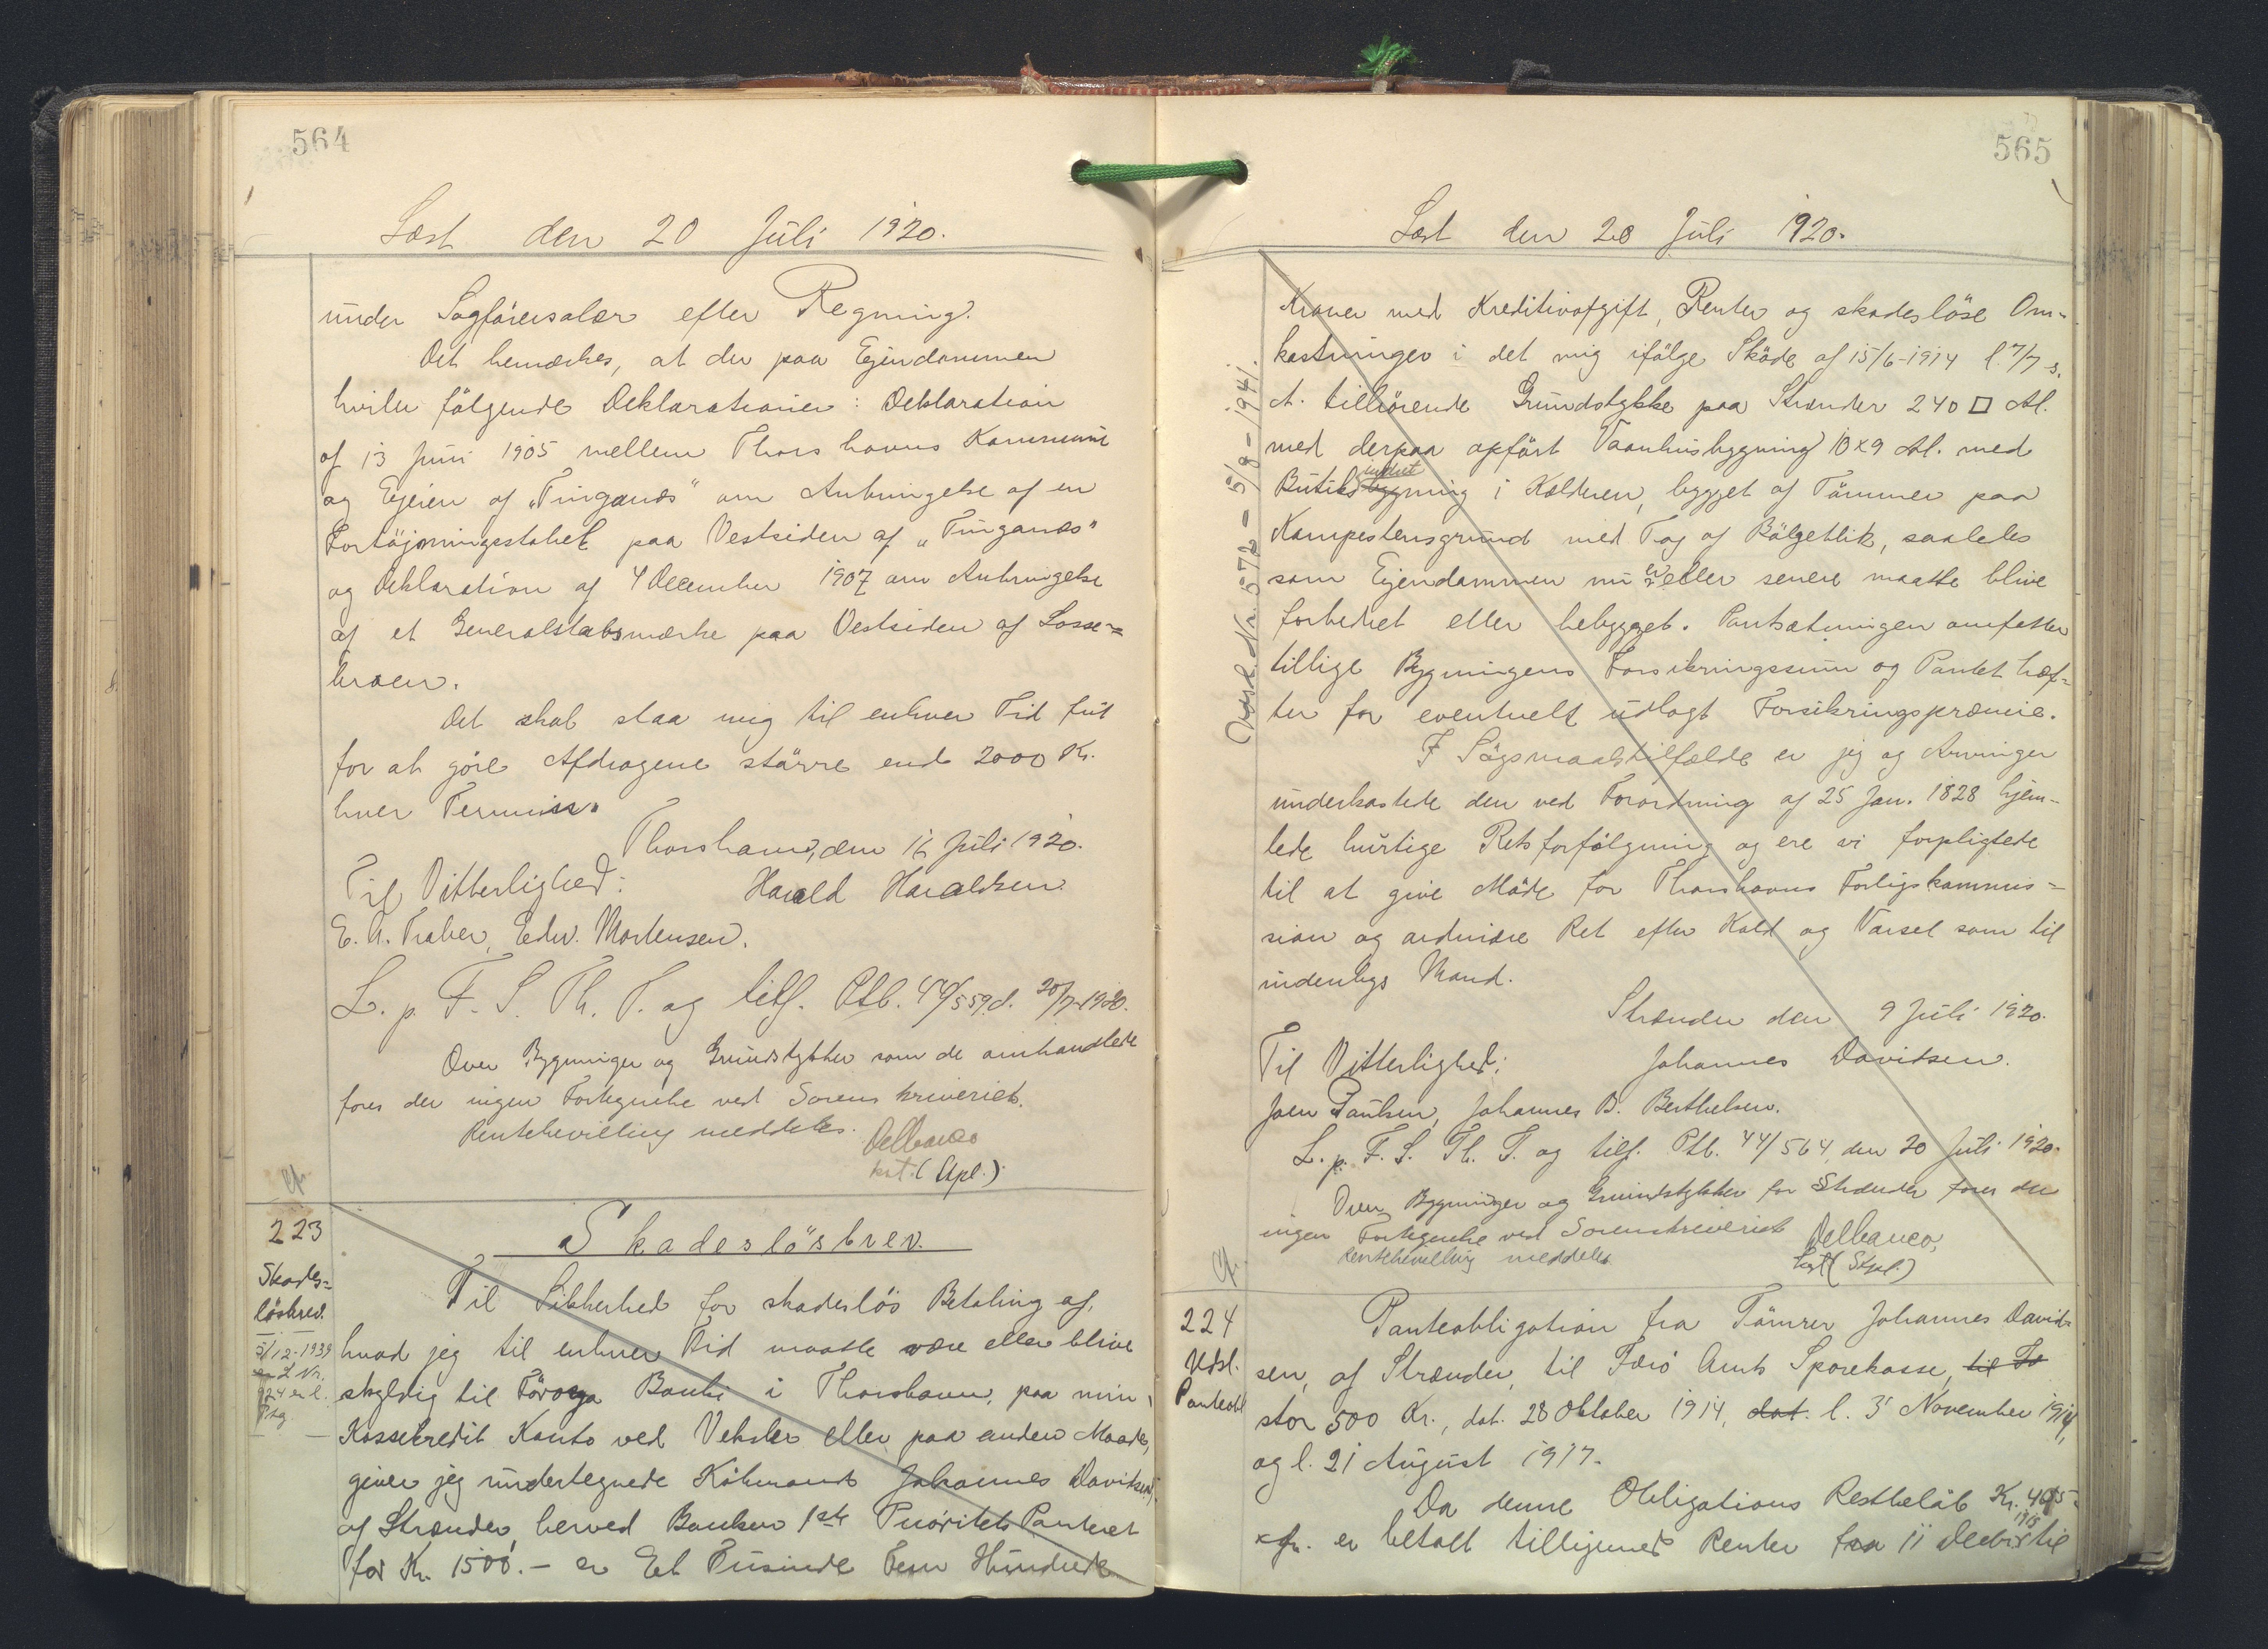 564
Læst den 20 Juli 1920.
under Sagförersalær efter Regning.
Det bemærkes, at der paa Ejendommen
hviler fölgende Deklarationer: Deklaration
af 13 Juni 1905 mellem Thorshavns Kommune
og Ejeren af "Tinganæs" om Anbringelse af en
Fortöjningsstabel paa Vestsiden af "Tinganæs"
og Deklaration af 4 December 1907 om Anbringelse
af et Generalstabsmærke paa Vestsiden af Losse=
broen.
Det skal staa mig til enhver Tid frit
for at göre Afdragene större end 2000 Kr.
hver Termin.
Thorshavn, den 16 Juli 1920.
Til Vitterlighed: Harald Haraldsen.
E. A. Traber, Edw. Mortensen.
L. p. F. S. Th. T. og tilf. Ptb. 44/559 d. 20/7-1920.
Over Bygninger og Grundstykker som de omhandlede
föres der ingen Fortegnelse ved Sorenskriveriet.
Rentebevilling meddeles. Delbanco
kst. (Spl.)
cf.
223
Skades=
lösbrev.
5/12-1939
L Nr.
Skadeslösbrev.
Til Sikkerhed for skadeslös Betaling af,
hvad jeg til enhver Tid maatte være eller blive
skyldig til Föroya Banki i Thorshavn, paa min
Kassekredit Konto ved Veksler eller paa anden Maade,
giver jeg undertegnede Köbmand Johannes Davidsen,
af Strænder, herved Banken 1ste Prioritets Panteret
for Kr. 1500.- er Et Tusinde Fem Hundrede
565
Læst den 20 Juli 1920.
Udsl. Nr. 572 - 5/8-1941.
Kroner med Kreditivafgift, Renter og skadeslöse Om-
kostninger i det mig ifölge Sköde af 15/6-1914 l. 7/7 s.
A. tilhörende Grundstykke paa Strænder 240 □ Al.
med derpaa opfört Vaanhusbygning 10x9 Al. med
Butiksbygning indret i Kælderen, bygget af Tömmer paa
Kampestensgrund med Tag af Bölgeblik, saaledes
som Ejendommen nu er eller senere maatte blive
forbedret eller bebygget. Pantsætningen omfatter
tillige Bygningens Forsikringssum og Pantet hæf=
ter for eventuelt udlagt Forsikringspræmie.
I Sögsmaalstilfælde er jeg og Arvinger
underkastede den ved Forordning af 25 Jan. 1828 hjem-
lede hurtige Retsforfölgning og ere vi forpligtede
til at give Möde for Thorshavns Forligskommis=
sion og ordinære Ret efter Kald og Varsel som til
indenbys Mand.
Strænder den 9 Juli 1920.
Til Vitterlighed: Johannes Davidsen.
Joen Paulsen, Johannes D. Berthelsen.
L. p. F. S. Th. T. og tilf. Ptb. 44/564, den 20 Juli 1920.
Over Bygninger og Grundstykker for Strænder föres der
ingen Fortegnelse ved Sorenskriveriet Delbanco,
Rentebevilling meddeles kst. (Stpl.)
cf.
224
Udsl.
Panteobl
Panteobligation fra Tömrer Johannes David=
sen, af Strænder, til Færö Amts Sparekasse, til Fæ
stor 500 Kr., dat. 28 Oktober 1914, dat. l. 3 November 1914,
og l. 21 August 1917.
Da denne Obligations Restbelöb Kr. 405-
er betalt tilligemed Renter fra 11 Decbr 1919 til